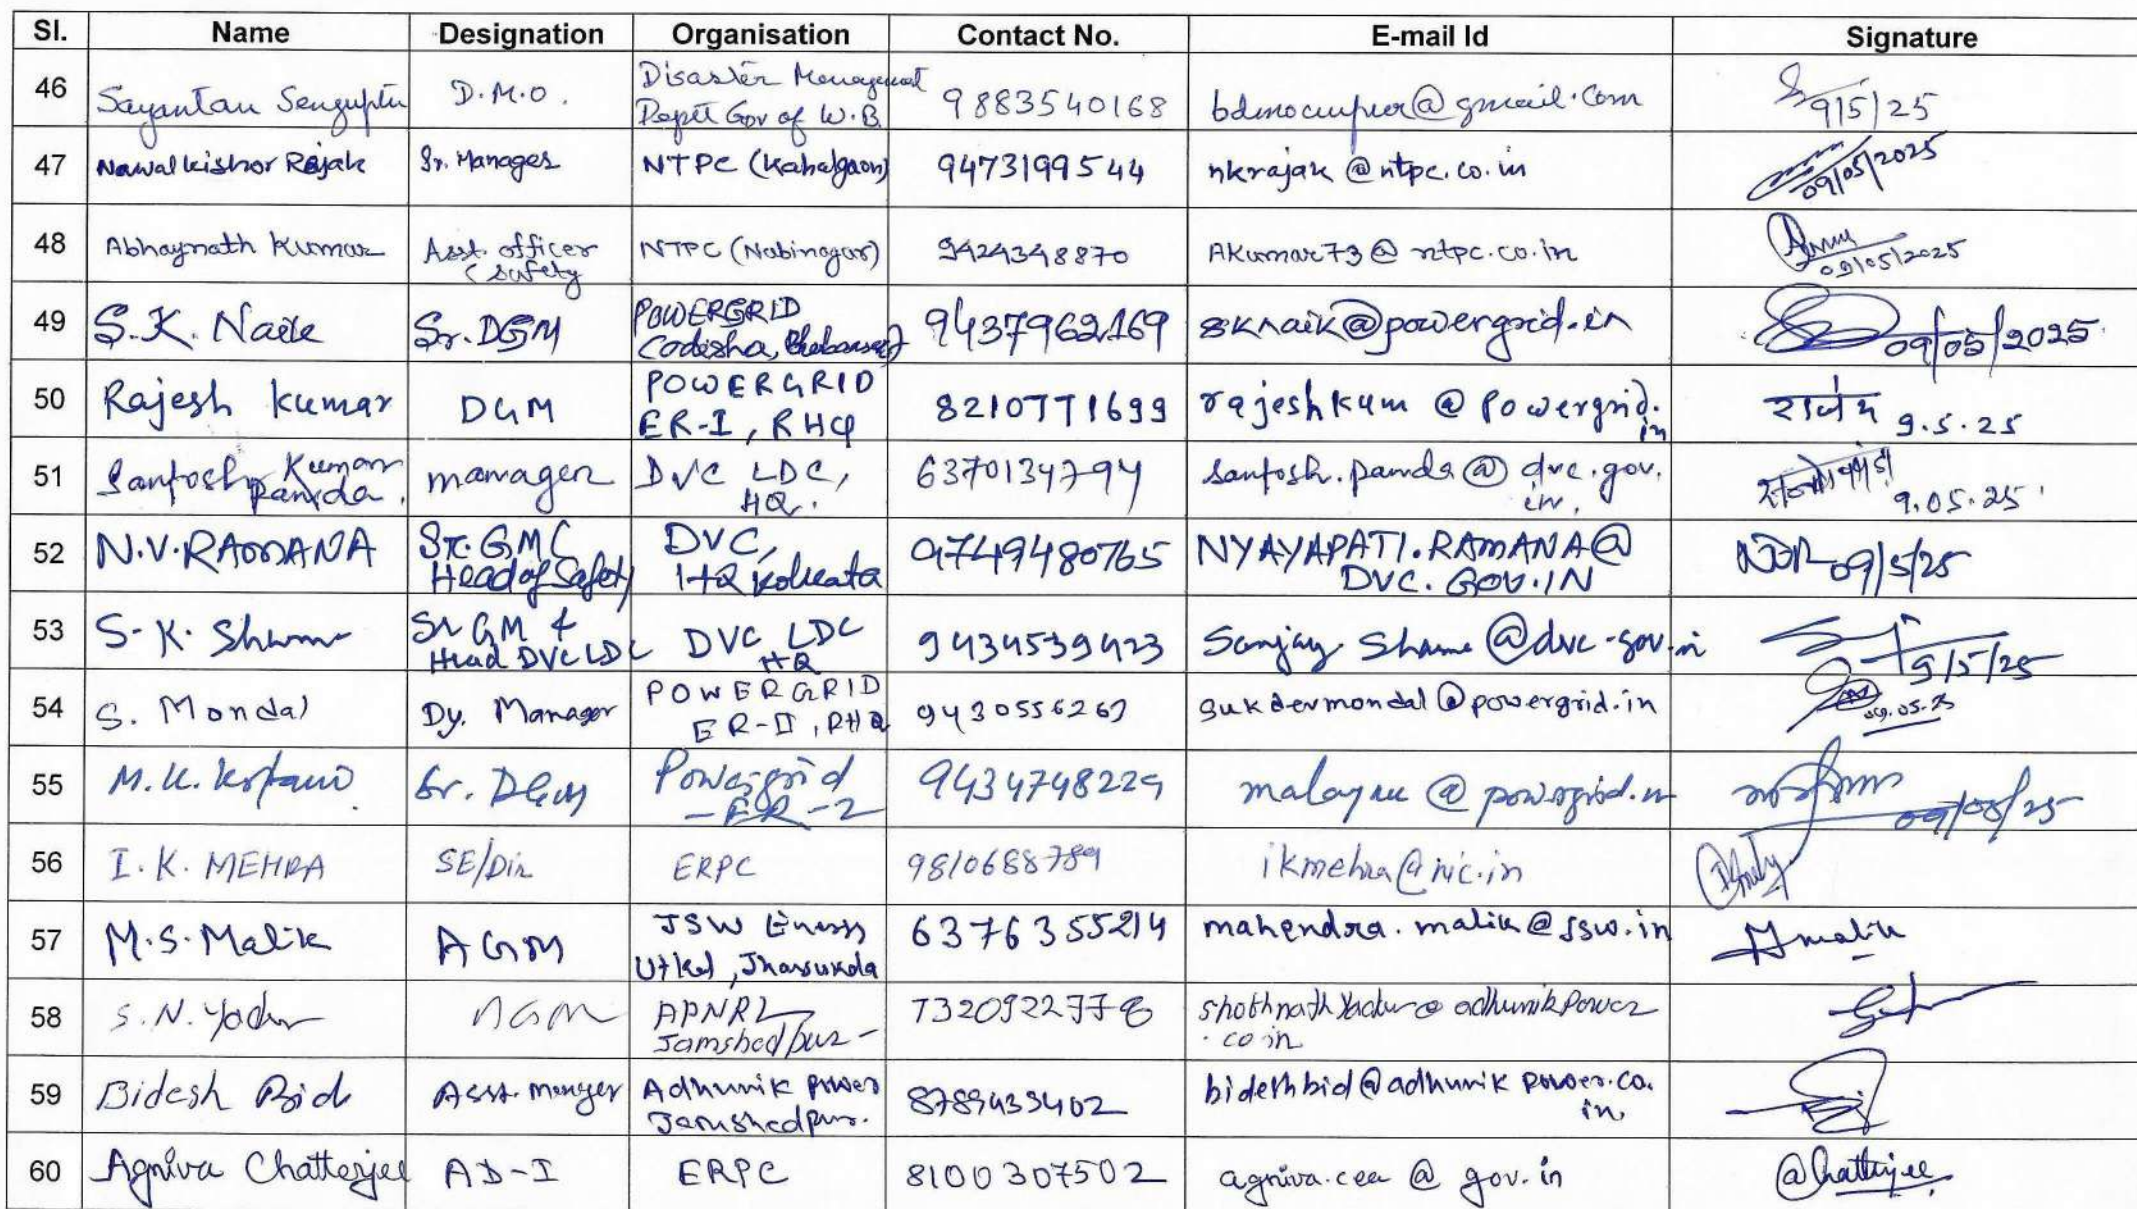 Sl. Name Designation Organisation Contact No. E-mail Id Signature
46 Sayantan Sengupta D.M.O. Disaster Management Deptt Gov of W.B. 9883540168 @gmail.com 9/5/25
47 Nawal kishor Rajak Sr. Manager NTPC (Kahalgaon) 9473199544 nkrajak@ntpc.co.in 09/05/2025
48 Abhaynath Kumar Asst. officer (Safety NTPC (Nabinagar) 9424348870 AKumar73@ntpc.co.in 09/05/2025
49 S.K. Naik Sr. DGM POWERGRID (odisha, 9437962169 sknaik@powergrid.in 09/05/2025
50 Rajesh Kumar DGM POWERGRID ER-I, RHQ 8210771699 rajeshkum@Powergrid.in 9.5.25
51 Santosh Kumar Panda. manager DVC LDC, HQ. 6370134794 santosh.panda@dvc.gov.in. 9.05.25
52 N.V.RAMANA Sr. GM( Head of Safety DVC, HQ Kolkata 9749480765 NYAYAPATI.RAMANA@DVC.GOV.IN NVR 09/5/25
53 S.K. Sr GM & Head DVC LDC DVC LDC HQ 9434539423 @dvc.gov.in 9/5/25
54 S. Mondal Dy. Manager POWERGRID ER-II, RHQ sukdevmondal@powergrid.in 09.05.25
55 M.K. Sr. DGM Powergrid -ER-2 9434748229 @powergrid.in 09/05/25
56 I.K. MEHRA SE/Dir ERPC 9810688789 ikmehra@nic.in
57 M.S. Malik AGM JSW Energy Utkal, Jharsukda 6376355214 mahendra.malik@jsw.in Malik
58 S.N. Yadav AGM APNRL Jamshedpur 7320922778 adhunikpower.co.in
59 Bidesh Bid Asst. Manger Adhunik power Jamshedpur. bideshbid@adhunikpower.co.in
60 Agniva Chatterjee AD-I ERPC 8100307502 agniva.cea@gov.in Chatterjee